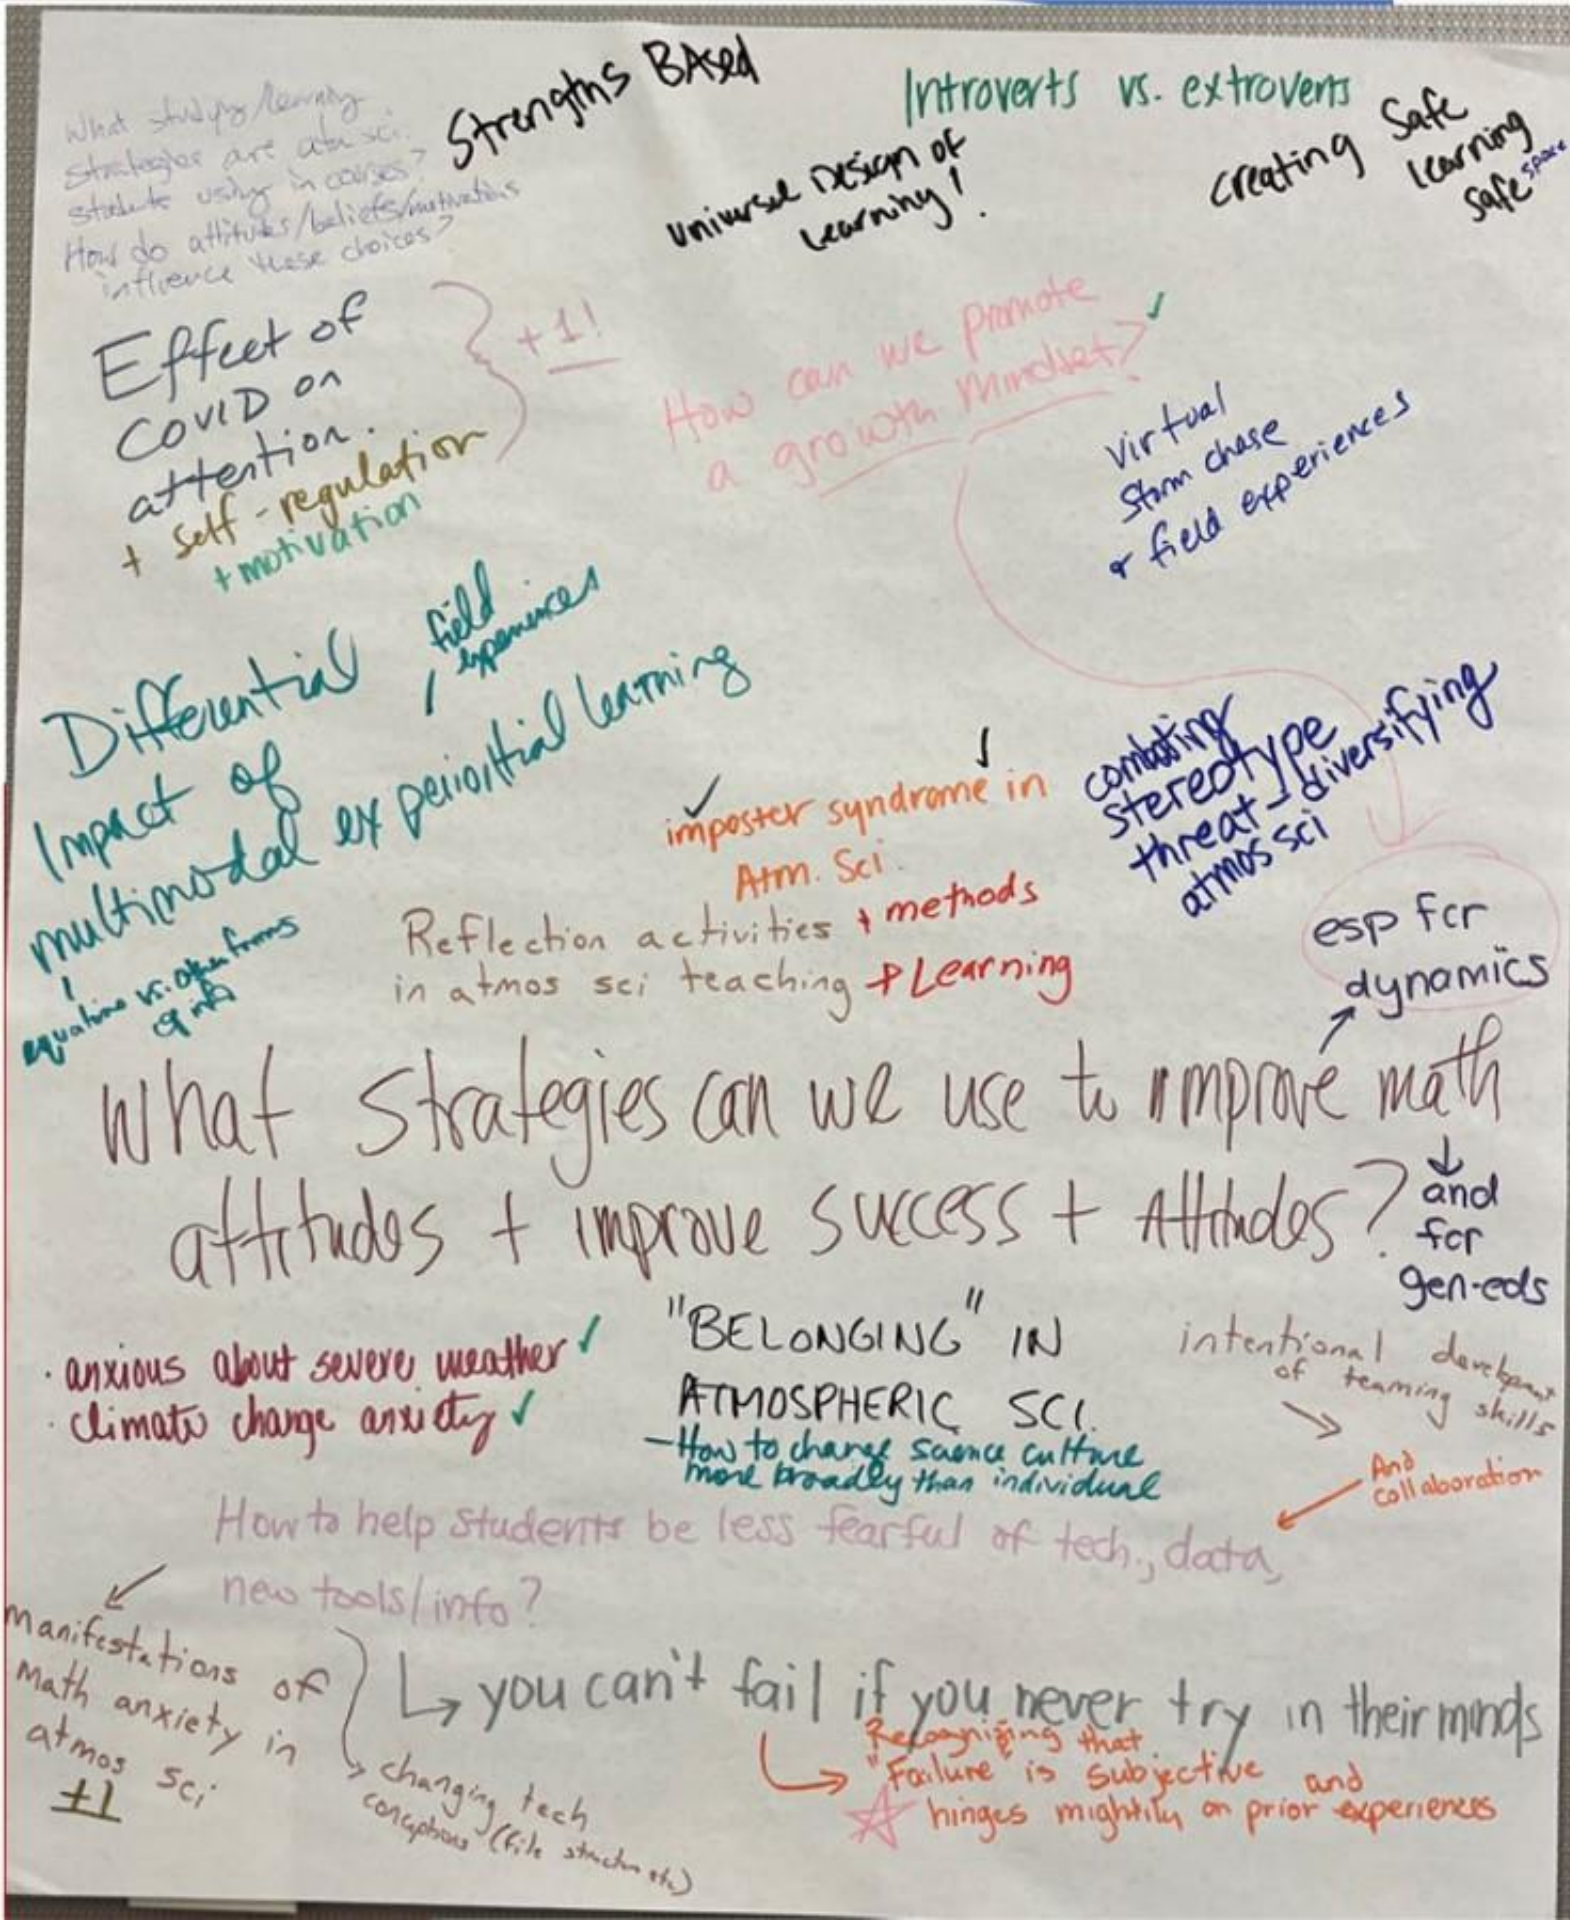 What studying/learning
strategies are atm sci.
students using in courses?
How do attitudes/beliefs/motivations
influence these choices?
Strengths BAsed
Introverts vs. extroverts
Universal Design of
Learning!
creating Safe
learning
safe space
Effect of
COVID on
attention.
+ self-regulation
+ motivation
+1!
How can we promote
a growth mindset?
virtual
storm chase
& field experiences
Differential
Impact of
multimodal experiential learning
field
experiences
equations vs. other forms
of info
imposter syndrome in
Atm. Sci.
combating
stereotype
threat - diversifying
atmos sci
Reflection activities + methods
in atmos sci teaching + Learning
esp for
dynamics
What strategies can we use to improve math
attitudes + improve success + Attitudes?
and
for
gen-eds
· anxious about severe weather
· climate change anxiety
"BELONGING" IN
ATMOSPHERIC SCI.
- How to change science culture
more broadly than individual
intentional development
of teaming skills
And
collaboration
How to help students be less fearful of tech., data,
new tools/info?
manifestations of
math anxiety in
atmos sci
+1
you can't fail if you never try in their minds
changing tech
conceptions (file structure etc)
Recognizing that
"Failure" is subjective and
hinges mightily on prior experiences